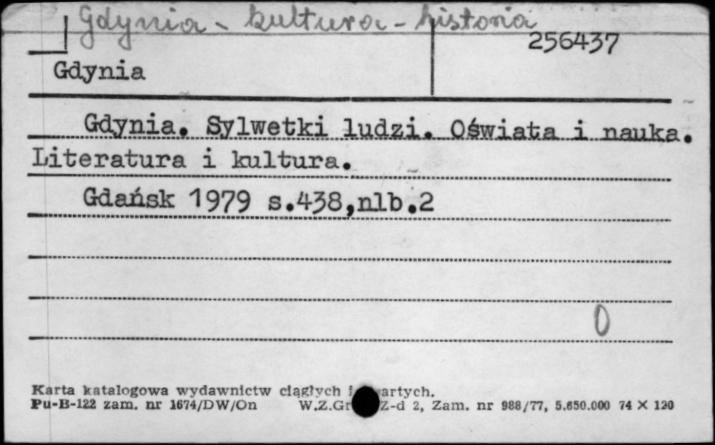 Gdynia - kultura - historia
256437
Gdynia
Gdynia. Sylwetki ludzi. Oświata i nauka.
Literatura i kultura.
Gdańsk 1979 s.438,nlb.2
0
Karta katalogowa wydawnictw ciągłych i
Pu-B-122 zam. nr 1674/DW/On W.Z.Gr Z-d 2, Zam. nr 988/77, 5.650.000 74 X 120